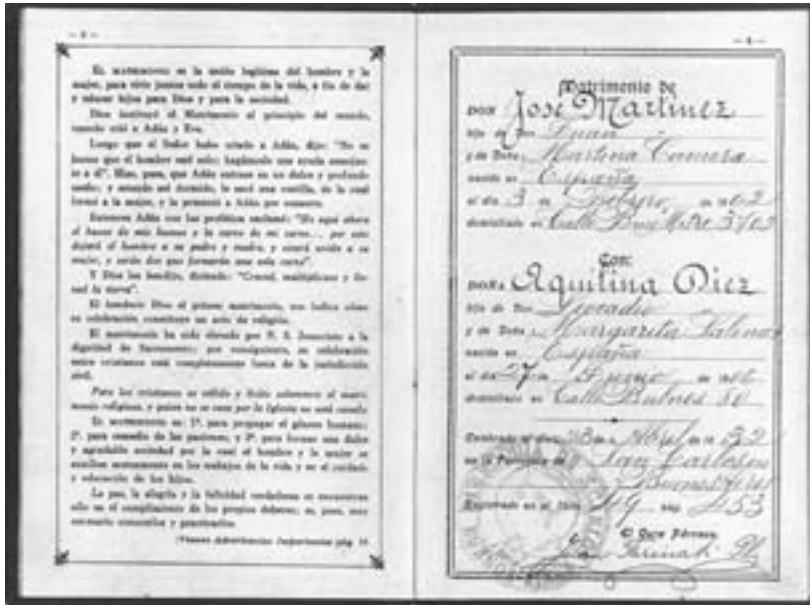 EL MATRIMONIO es la unión legítima del hombre y la
mujer, para vivir juntos todo el tiempo de la vida, a fin de dar
y educar hijos para Dios y para la sociedad.
Dios instituyó el Matrimonio al principio del mundo,
cuando crió a Adán y Eva.
Luego que el Señor hubo criado a Adán, dijo: "No es
bueno que el hombre esté solo; hagámosle una ayuda semejan-
te a él". Hizo, pues, que Adán entrase en un dulce y profundo
sueño; y estando así dormido, le sacó una costilla, de la cual
formó a la mujer, y la presentó a Adán por consorte.
Entonces Adán
el hueso de mis huesos y la carne de mi carne... por esto
dejará el hombre a su padre y madre, y estará unido a su
mujer, y serán dos que formarán una sola carne".
Y Dios los bendijo, diciendo: "Creced, multiplicaos y lle-
nad la tierra".
El bendecir Dios el primer matrimonio, nos indica cómo
su celebración constituye un acto de religión.
El matrimonio ha sido elevado por N. S. Jesucristo a la
dignidad de Sacramento; por consiguiente, su celebración
entre cristianos está completamente fuera de la jurisdicción
civil.
Para los cristianos es válido y lícito solamente el matri-
monio religioso, y quien no se casa por la Iglesia no está casado
EL MATRIMONIO es: 1º. para propagar el género humano;
2º. para remedio de las pasiones; y 3º. para formar una dulce
y agradable sociedad por la cual el hombre y la mujer se
auxilien mutuamente en los trabajos de la vida y en el cuidado
y educación de los hijos.
La paz, la alegría y la felicidad verdaderas se encuentran
sólo en el cumplimiento de los propios deberes; es, pues, muy
necesario conocerlos y practicarlos.
(Véanse Advertencias Importantes pág.
Matrimonio de
DON José Martinez
hijo de Don Juan
y de Doña Martina Camara
nacido en España
el día 3 de de 1902
domiciliado en Calle
Con:
DOÑA Aquilina Diez
hija de Don Leocadio
y de Doña Margarita
nacida en España
el día 27 de Junio de
domiciliada en Calle Bulnes 80
Celebrado el día 23 de Abril de 1932
en la Parroquia de San Carlos
Buenos Aires
Registrado en el libro 49 pág. 453
El Cura Párroco